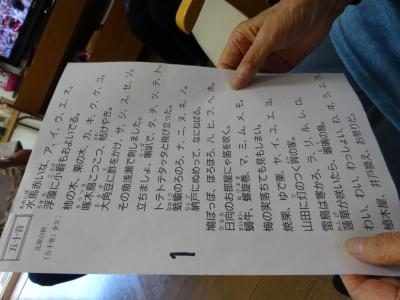 五十音
北原白秋
「五十音」全文
水馬赤いな、ア、イ、ウ、エ、オ。
浮藻に小蝦もおよいでる。
柿の木、栗の木、カ、キ、ク、ケ、コ。
啄木鳥こつこつ、枯けやき。
大角豆に酢をかけ、サ、シ、ス、セ、ソ。
その魚浅瀬で刺しました。
立ちましょ、喇叭で、タ、チ、ツ、テ、ト。
トテトテタッタと飛び立った。
蛞蝓のろのろ、ナ、ニ、ヌ、ネ、ノ。
納戸にぬめって、なにねばる。
鳩ぽっぽ、ほろほろ、ハ、ヒ、フ、ヘ、ホ。
日向のお部屋にゃ笛を吹く。
蝸牛、螺旋巻、マ、ミ、ム、メ、モ。
梅の実落ちても見もしまい。
焼栗、ゆで栗、ヤ、イ、ユ、エ、ヨ。
山田に灯のつく宵の家。
雷鳥は寒かろ、ラ、リ、ル、レ、ロ。
蓮華が咲いたら、瑠璃の鳥。
わい、わい、わっしょい。ワ、ヰ、ウ、ヱ、ヲ。
植木屋、井戸換え、お祭りだ。
1